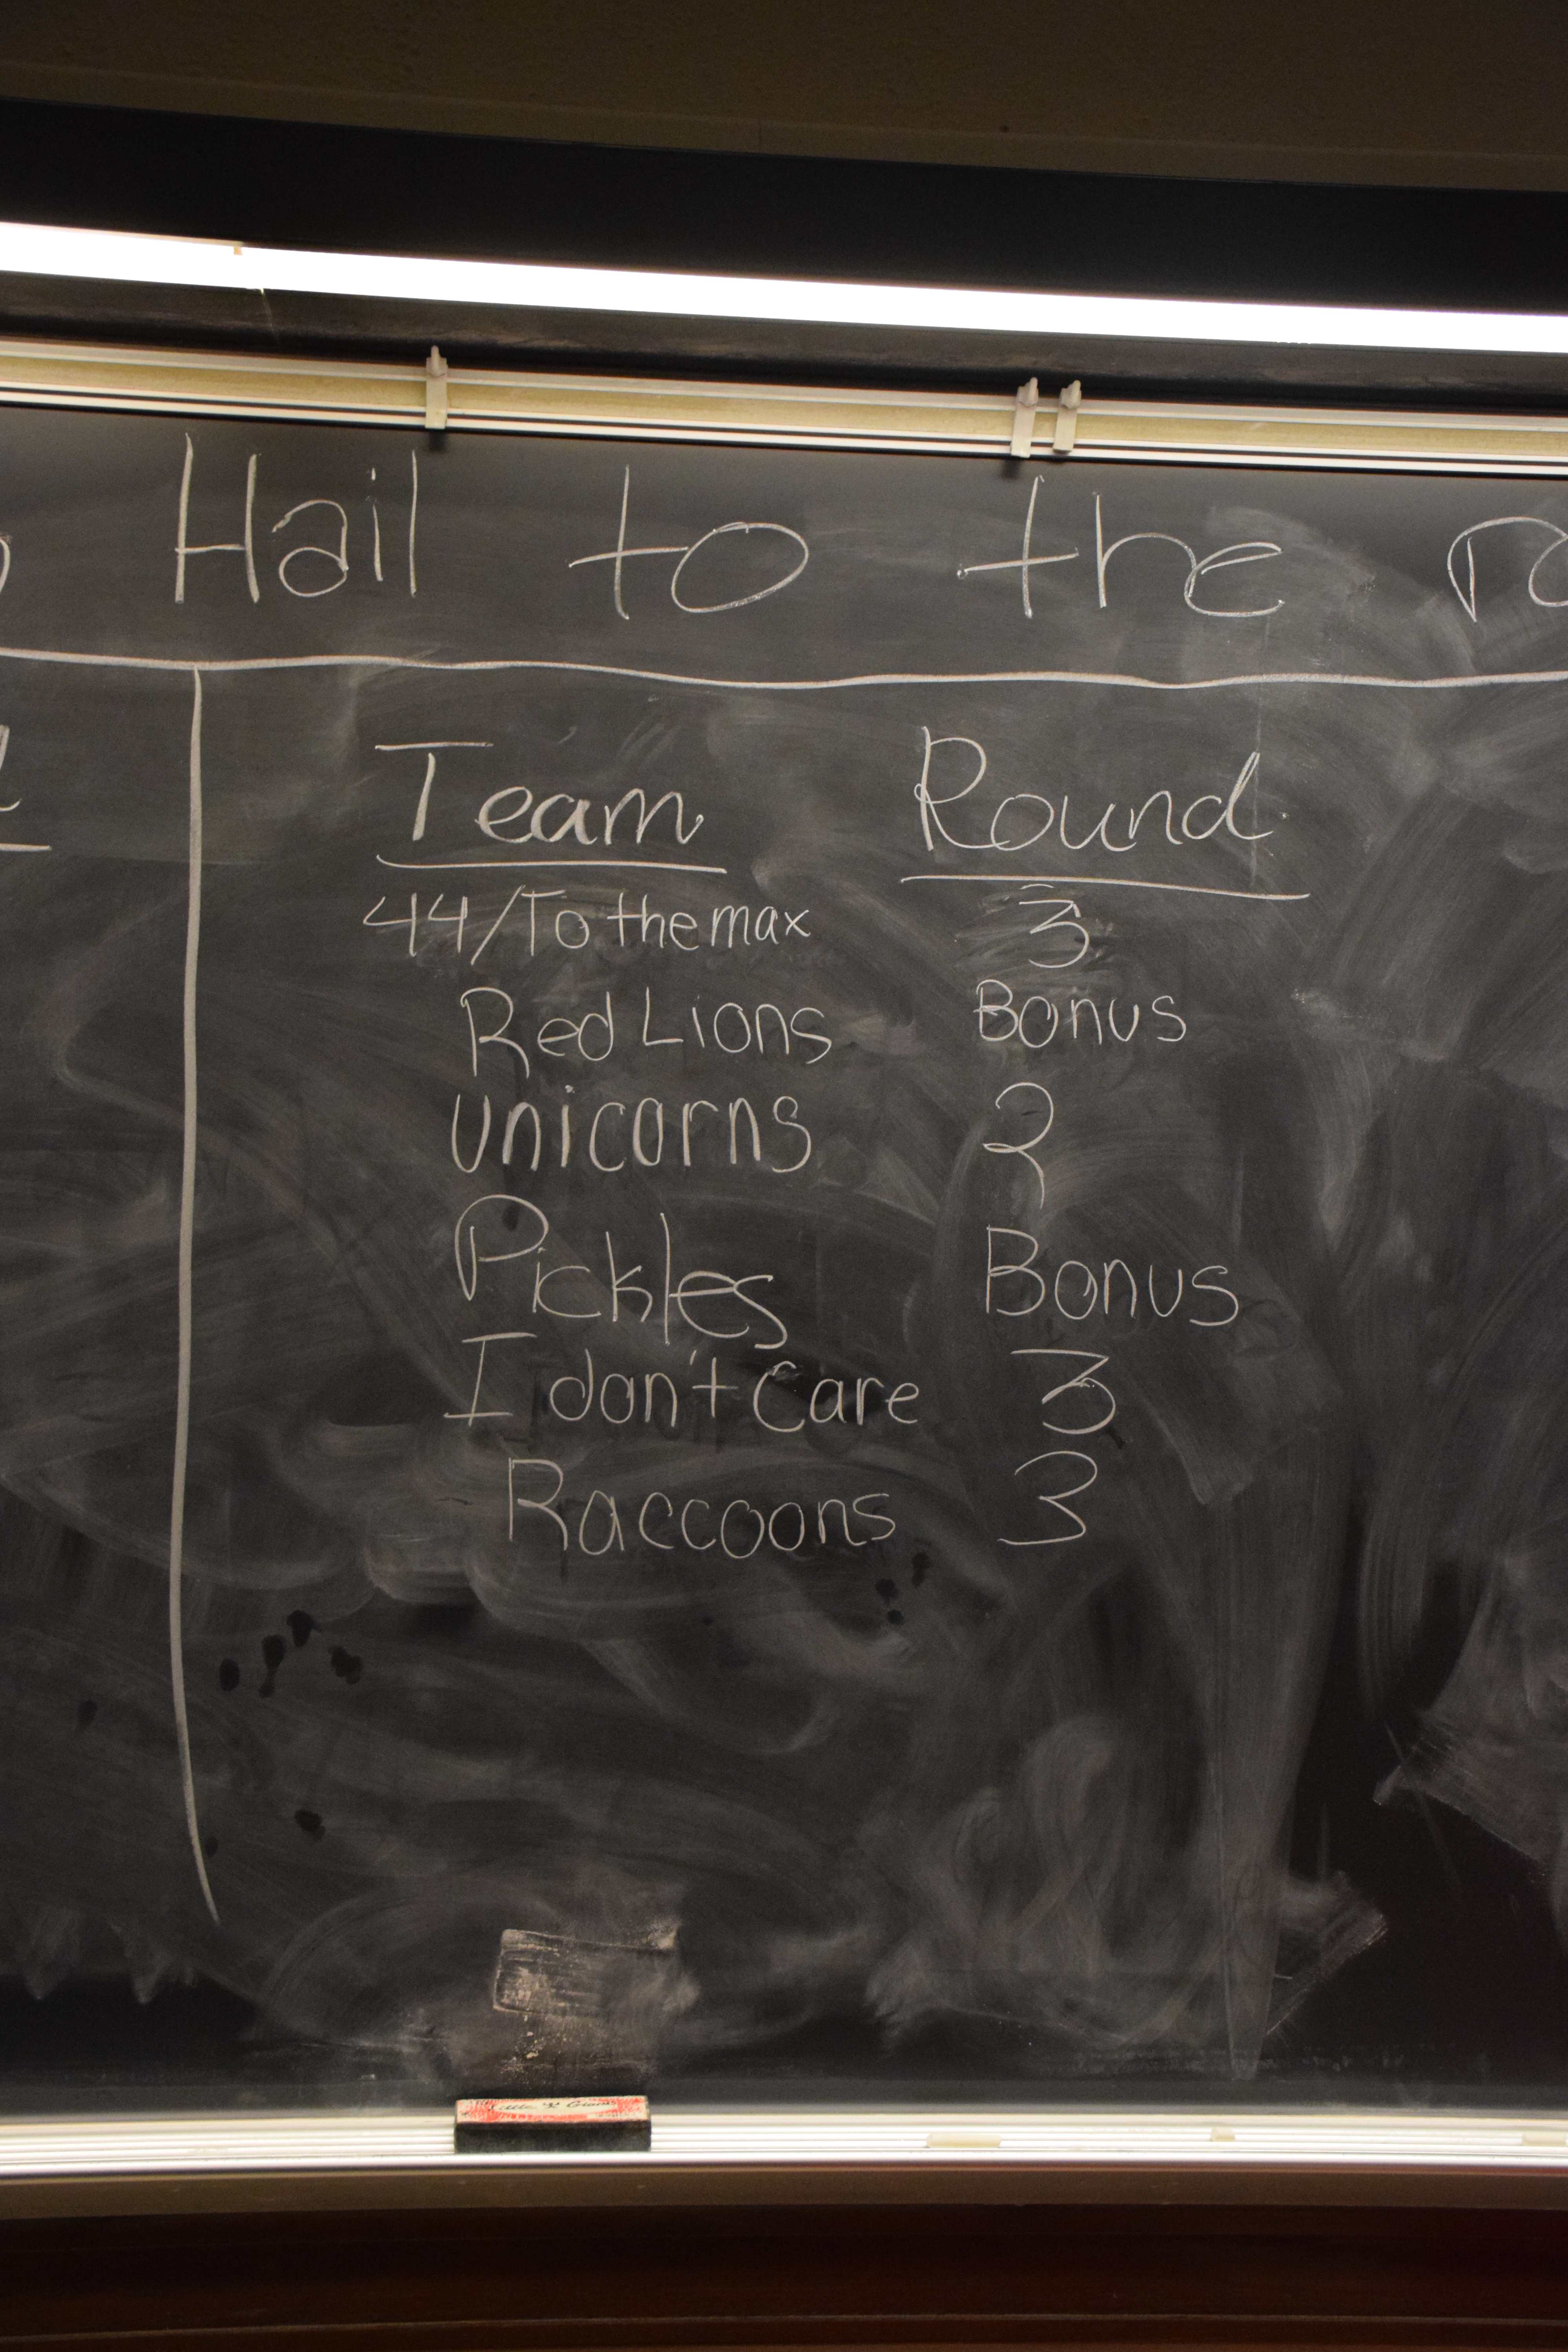 Hail to the
Team Round
44/To the max 3
Red Lions Bonus
unicorns 2
Pickles Bonus
I don't care 3
Raccoons 3